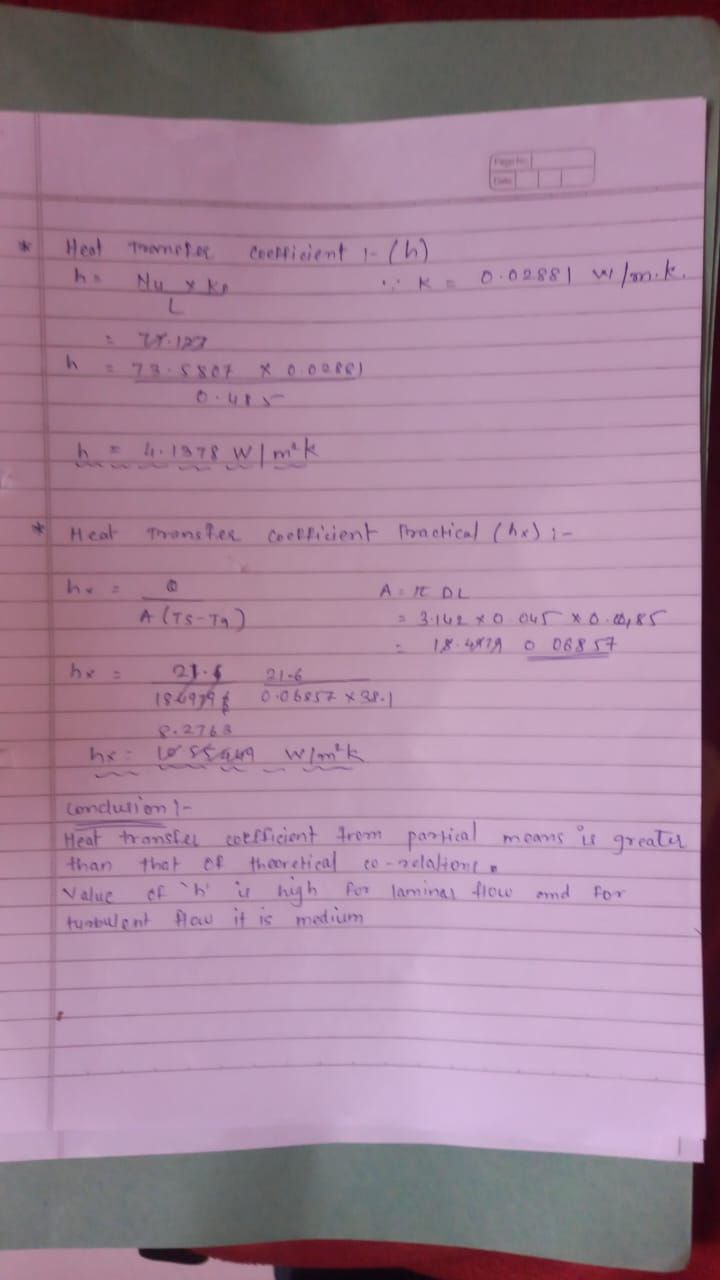 Page No.
Date
* Heat Transfer coefficient :- (h)
h = Nu × Ke ∵ K = 0.02881 W/m.k.
L
=
h = 73.5807 × 0.02881
0.485
h = 4.1378 W/m²k
* Heat Transfer coefficient Practical (hx) :-
hx = Q A = π DL
A (TS-Ta) = 3.142 × 0.045 × 0.485
= 0.06857
hx = 21.6 21.6
0.06857 × 38.1
8.2763
hx = W/m²k
Conclusion :-
Heat transfer coefficient from partical means is greater
than that of theoretical co-relations.
Value of 'h' is high for laminar flow and for
turbulent flow it is medium